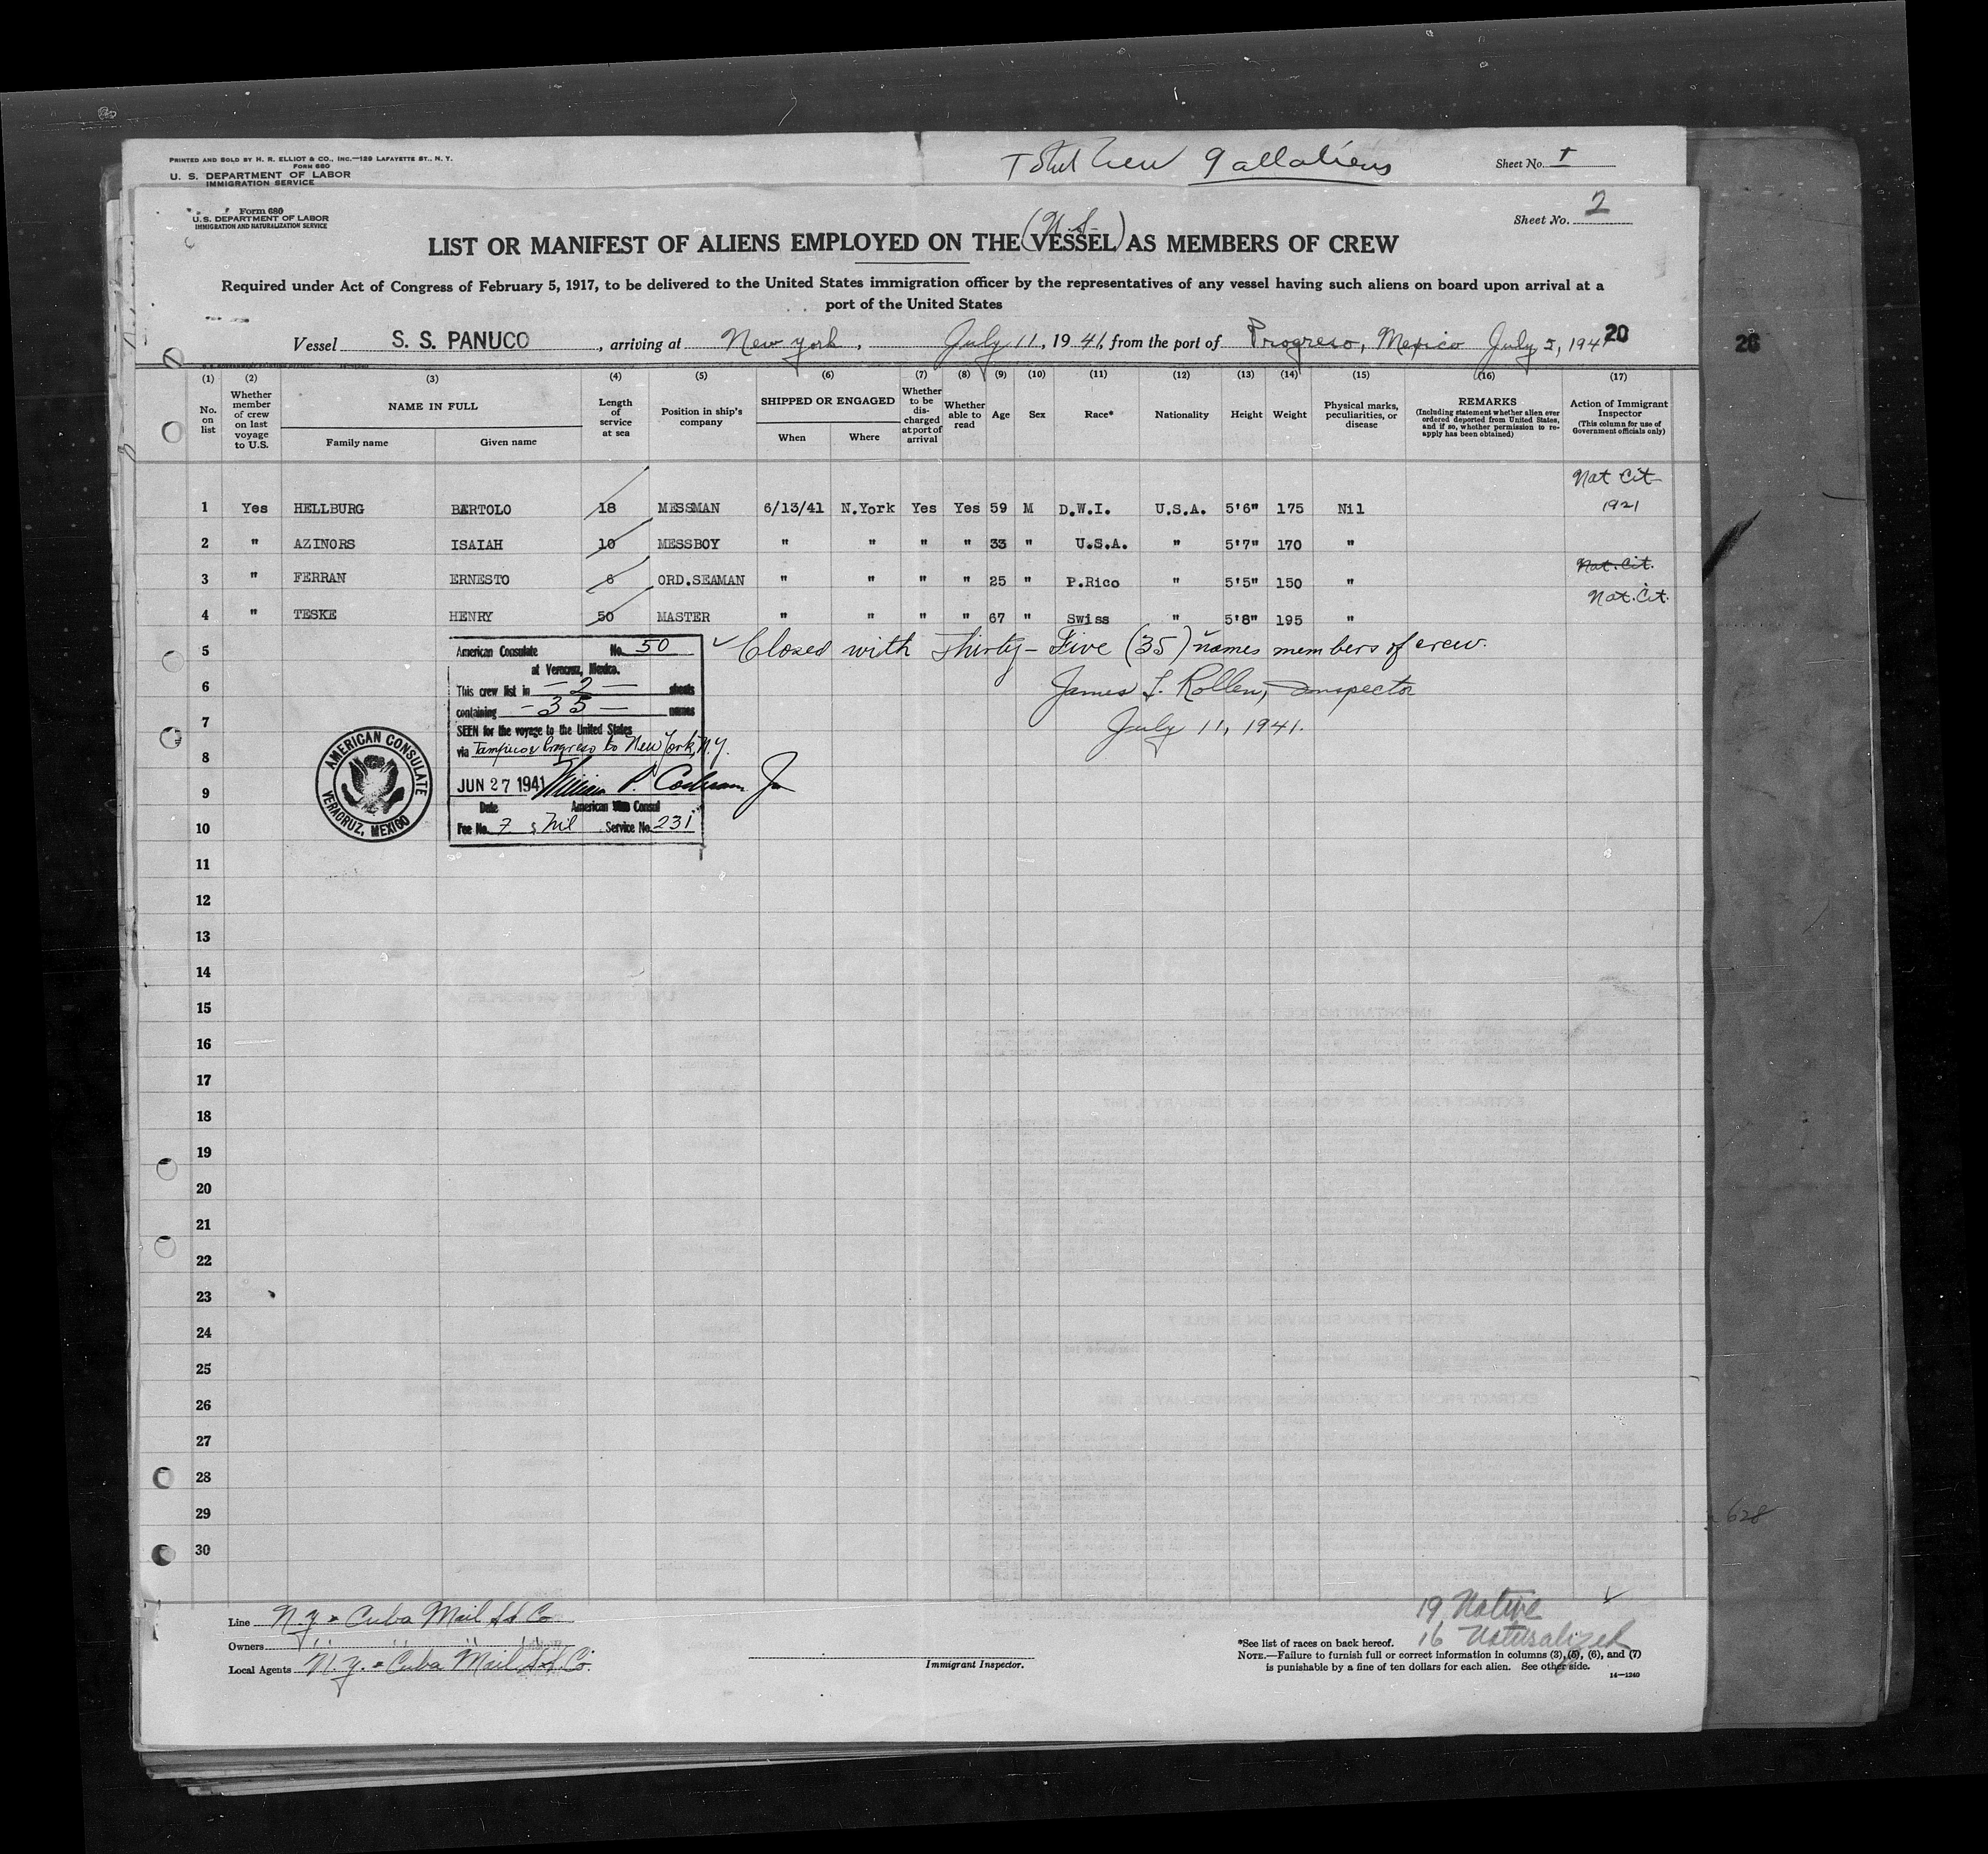 PRINTED AND SOLD BY H. R. ELLIOT & CO., INC.—129 LAFAYETTE ST., N. Y.
FORM 680
U. S. DEPARTMENT OF LABOR
IMMIGRATION SERVICE
Total Crew 9 all aliens
Sheet No. 1
Form 680
U.S. DEPARTMENT OF LABOR
IMMIGRATION AND NATURALIZATION SERVICE
Sheet No. 2
(U.S.)
LIST OR MANIFEST OF ALIENS EMPLOYED ON THE VESSEL AS MEMBERS OF CREW
Required under Act of Congress of February 5, 1917, to be delivered to the United States immigration officer by the representatives of any vessel having such aliens on board upon arrival at a
port of the United States
Vessel S. S. PANUCO, arriving at New York, July 11, 1941, from the port of Progreso, Mexico July 5, 194 20
26
(1) (2) (3) (4) (5) (6) (7) (8) (9) (10) (11) (12) (13) (14) (15) (16) (17)
No. on list
Whether member of crew on last voyage to U.S.
NAME IN FULL
Family name Given name
Length of service at sea
Position in ship's company
SHIPPED OR ENGAGED
When Where
Whether to be discharged at port of arrival
Whether able to read
Age Sex Race* Nationality Height Weight
Physical marks, peculiarities, or disease
REMARKS
(Including statement whether alien ever ordered deported from United States, and if so, whether permission to reapply has been obtained)
Action of Immigrant Inspector
(This column for use of Government officials only)
Nat Cit
1 Yes HELLBURG BARTOLO 18 MESSMAN 6/13/41 N.York Yes Yes 59 M D.W.I. U.S.A. 5'6" 175 Nil 1921
2 " AZINORS ISAIAH 10 MESSBOY " " " " 33 " U.S.A. " 5'7" 170 "
3 " FERRAN ERNESTO 6 ORD.SEAMAN " " " " 25 " P.Rico " 5'5" 150 " Nat. Cit.
4 " TESKE HENRY 50 MASTER " " " " 67 " Swiss " 5'8" 195 " Nat. Cit.
5 Closed with Thirty-Five (35) names members of crew.
6 James F. Rollen, Inspector
7 July 11, 1941.
8
9
10
American Consulate No. 50
at Veracruz, Mexico.
This crew list in — 2 — sheets
containing — 35 — names
SEEN for the voyage to the United States
via Tampico & Progreso to New York, N.Y.
JUN 27 1941 William P. Cochran Jr
Date American Vice Consul
Fee No. 7 $ Nil Service No. 231
AMERICAN CONSULATE
VERACRUZ, MEXICO
11
12
13
14
15
16
17
18
19
20
21
22
23
24
25
26
27
28
29
30
628
Line N.Y. & Cuba Mail SS Co
Owners " " " "
Local Agents N.Y. & Cuba Mail S.S. Co.
Immigrant Inspector.
19 Native
16 Naturalized
*See list of races on back hereof.
NOTE.—Failure to furnish full or correct information in columns (3), (5), (6), and (7)
is punishable by a fine of ten dollars for each alien. See other side.
14—1240